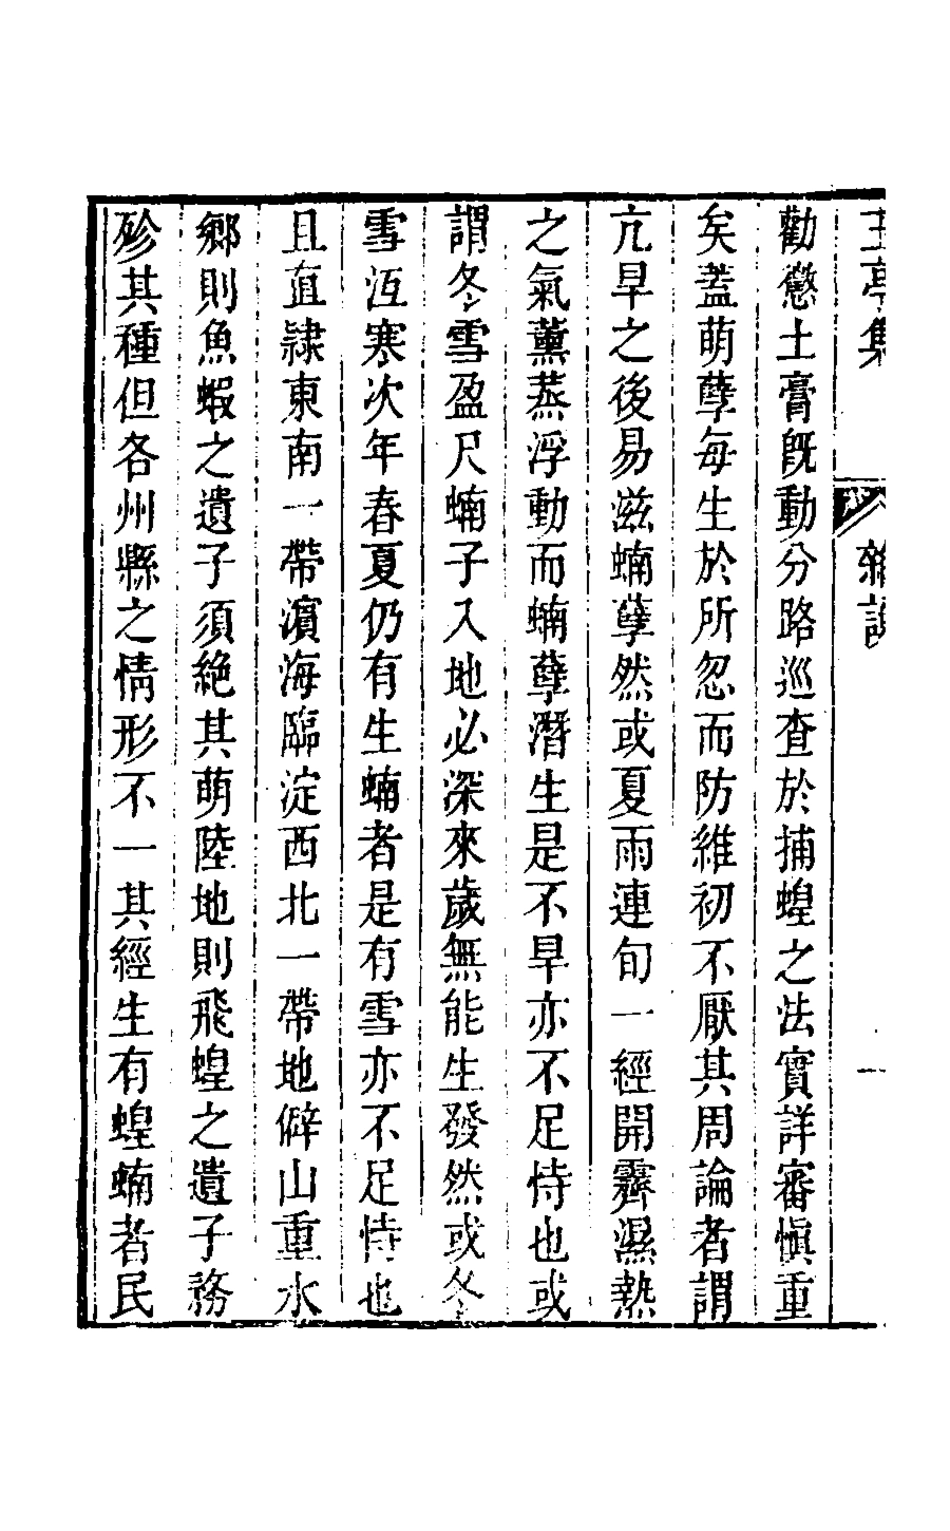 勸懲土膏旣動分路巡查於捕蝗之法實詳審愼重
矣蓋萌孽每生於所忽而防維初不厭其周論者謂
亢旱之後易滋蝻孽然或夏雨連旬一經開霽濕熱
之氣薰蒸浮動而蝻孽潛生是不旱亦不足恃也或
謂冬雪盈尺蝻子入地必深來歲無能生發然或冬
雪沍寒次年春夏仍有生蝻者是有雪亦不足恃也
且直隷東南一帶濵海臨淀西北一帶地僻山重水
鄉則魚蝦之遺子須絶其萌陸地則飛蝗之遺子務
殄其種但各州縣之情形不一其經生有蝗蝻者民